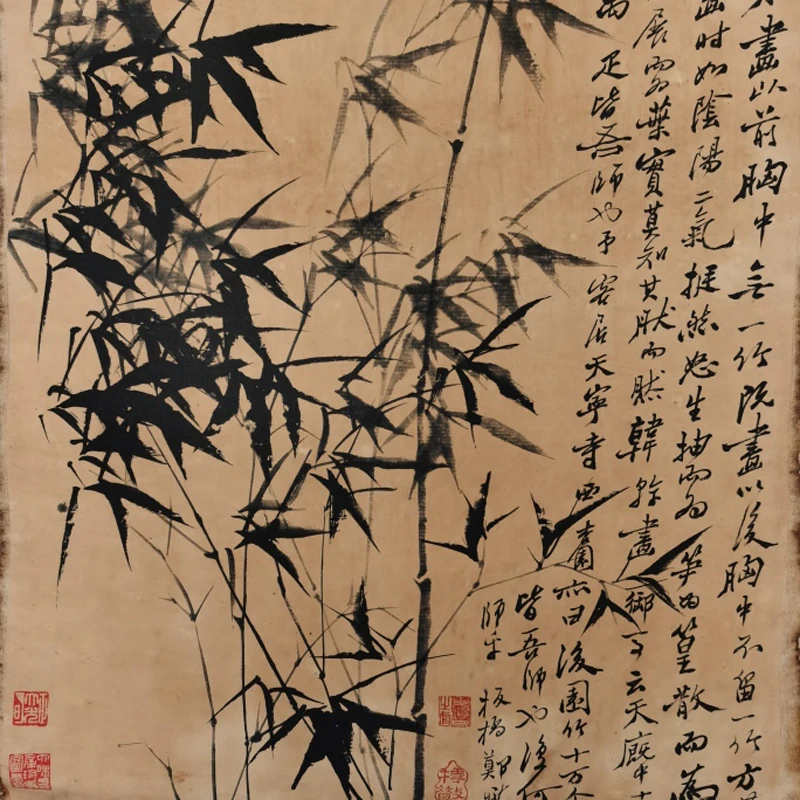 畫以前胸中無一竹既畫以後胸中不留一竹方其
畫時如陰陽二氣挺然怒生抽而為笋為篁散而為
展而為葉實莫知其然而然韓幹畫御馬云天廄中十
萬足皆吾師也予客居天寧寺西杏園亦曰後園竹十万个
皆吾師也復何
師乎 板橋鄭燮